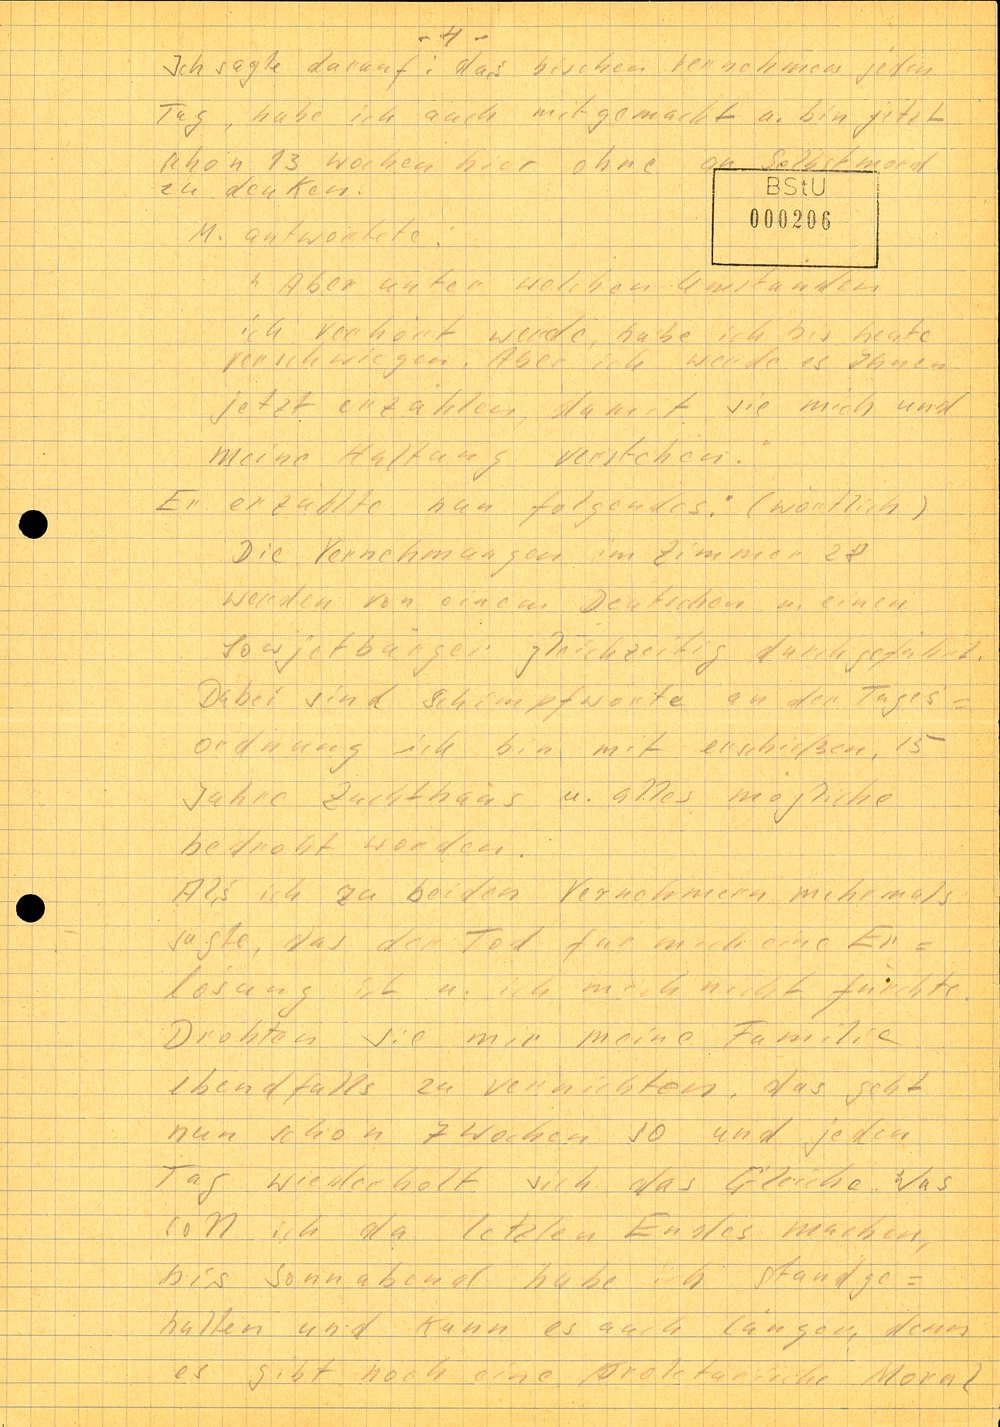 - 4 -
Ich sagte darauf: das bischen vernehmen jeden
Tag, habe ich auch mitgemacht u. bin jetzt
schon 13 wochen hier ohne an Selbstmord
zu denken.
BStU
000206
M. antwortete:
" Aber unter welchen Umständen
ich verhört werde, habe ich bis heute
verschwiegen. Aber ich werde es Ihnen
jetzt erzählen, damit sie mich und
meine Haltung verstehen."
Er erzählte nun folgendes: (wörtlich)
Die Vernehmungen im Zimmer 28
werden von einem Deutschen u. einen
Sowjetbürger gleichzeitig durchgeführt.
Dabei sind Schimpfworte an der Tages=
ordnung ich bin mit erschießen, 15
Jahre Zuchthaus u. alles mögliche
bedroht worden.
Als ich zu beiden Vernehmern mehrmals
sagte, das der Tod für mich eine Er=
lösung ist u. ich mich nicht fürchte.
Drohten sie mir meine Familie
ebendfalls zu vernichten, das geht
nun schon 7 wochen so und jeden
Tag wiederholt sich das Gleiche. Was
soll ich da letzten Endes machen,
bis Sonnabend habe ich standge=
halten und kann es auch länger, denn
es gibt noch eine Proletarische Moral